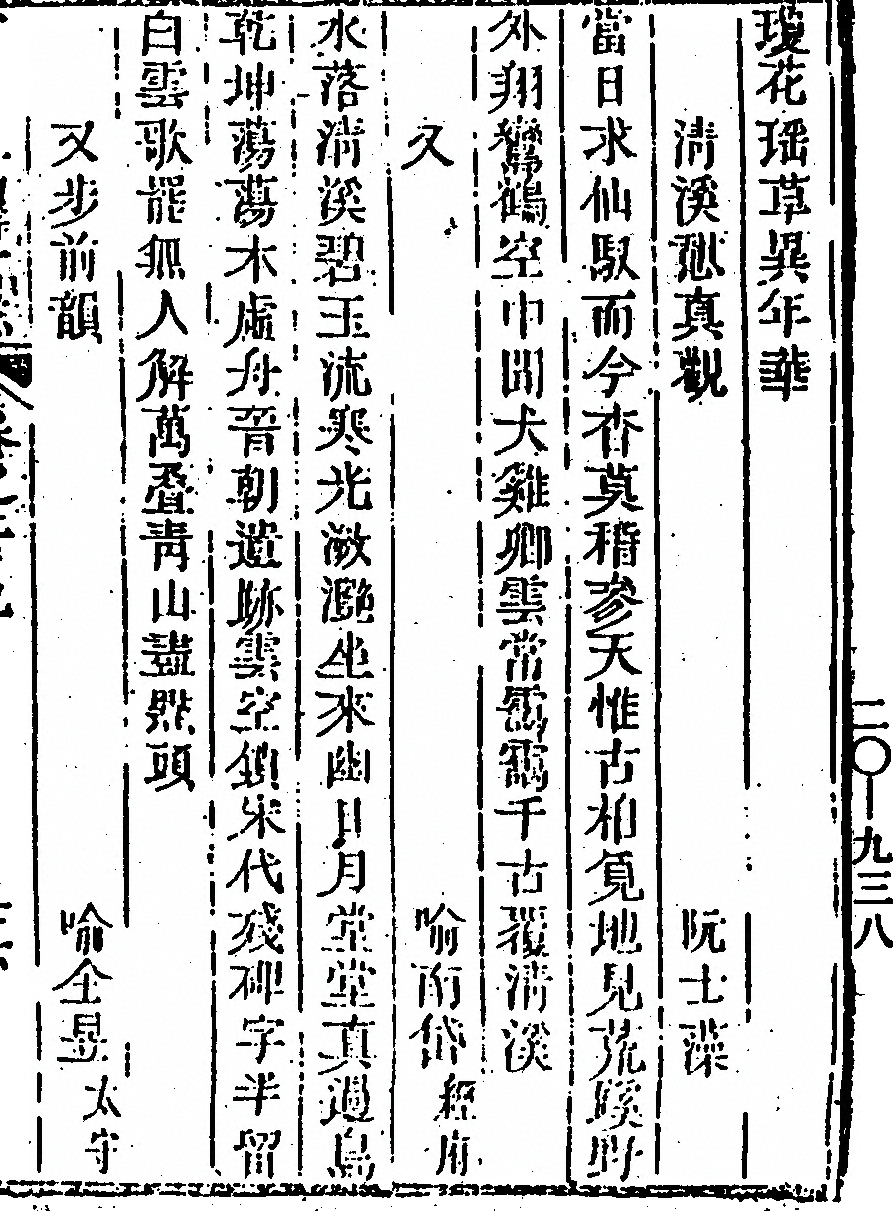 瓊花瑶草異年華
清溪愻真觀 阮士藻
當日求仙馭而今杳莫稽參天惟古柏覓地見荒蹊野
外翔鸞鶴空中聞犬雞卿雲常靄靄千古覆清溪
又 喻 岱經府
水落清溪碧玉流寒光瀲灔坐來幽日月堂堂真過鳥
乾坤蕩蕩木虛舟晉朝遺跡雲空鎖宋代殘碑字半留
白雲歌罷無人解萬疊靑山盡㸃頭
又步前韻 喻全昱太守
二〇—九三八